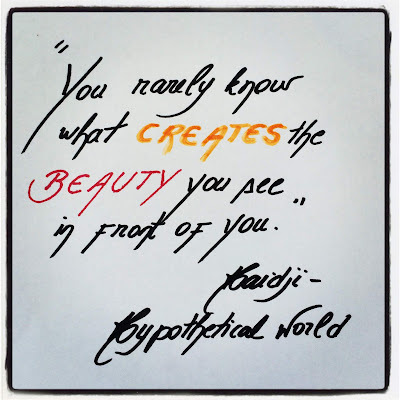 "You rarely know
what CREATES the
BEAUTY you see
in front of you."
Haidji –
Hypothetical World